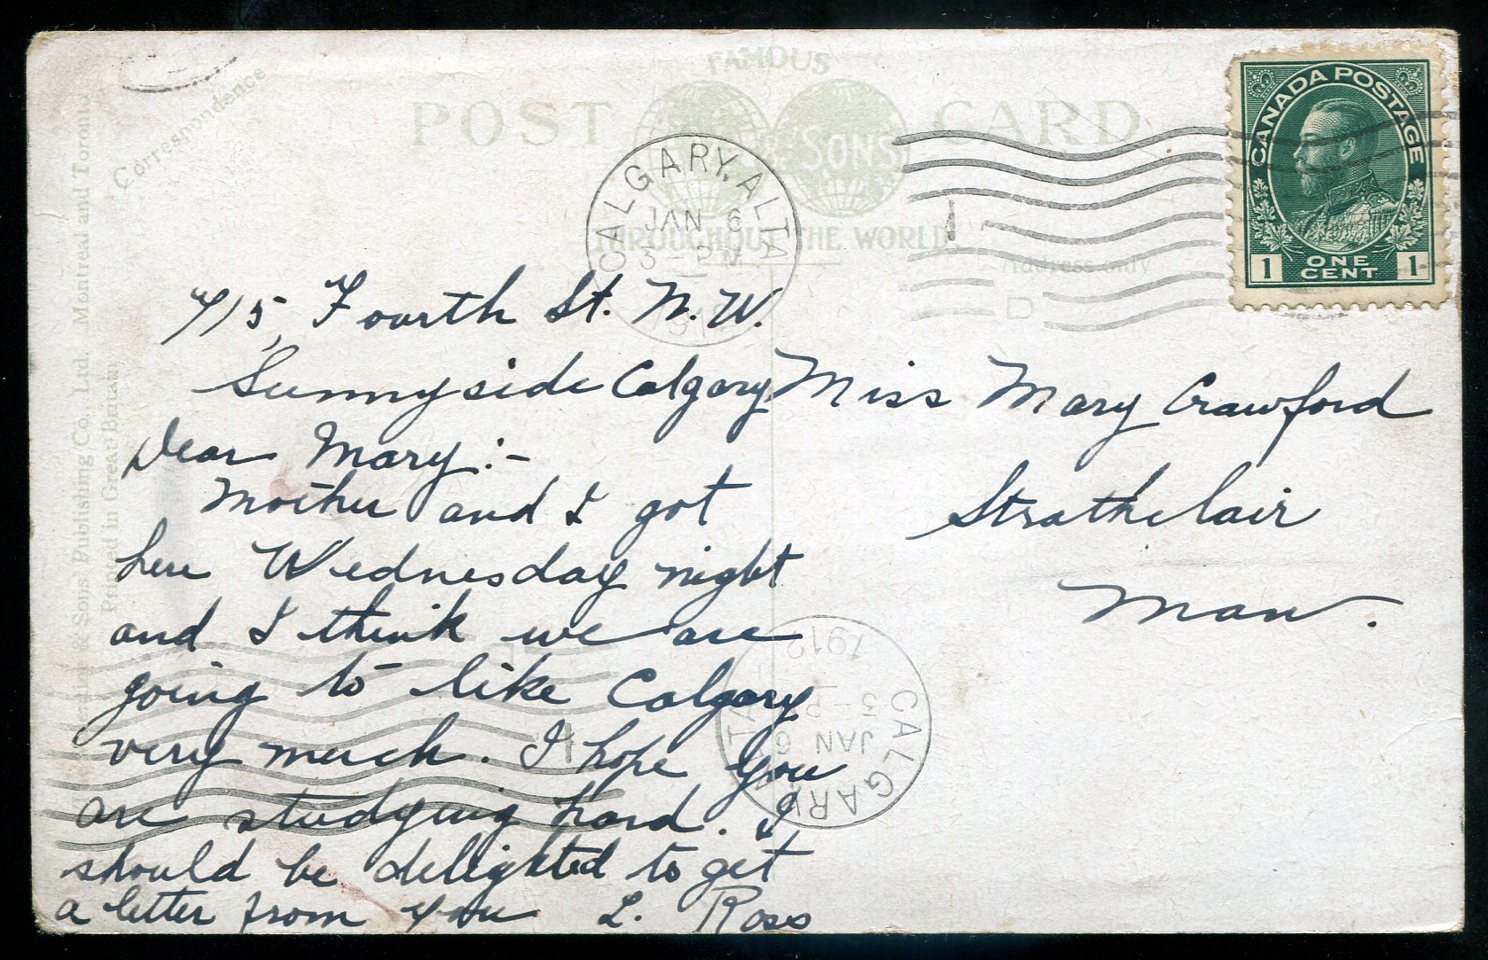 Correspondence
POST CARD
FAMOUS
& SONS
THROUGHOUT THE WORLD
Address only
CALGARY, ALTA
JAN 6
3 - PM
191
CANADA POSTAGE
1 ONE CENT 1
715, Fourth St. N.W.
Sunnyside Calgary
Dear Mary:-
Mother and I got
here Wednesday night
and I think we are
going to like Calgary
very much. I hope you
are studying hard. I
should be delighted to get
a letter from you L. Ross
Miss Mary Crawford
Strathclair
Man.
CALGARY, ALTA
JAN 6
3 - P
1912
& Sons Publishing Co., Ltd. Montreal and Toronto
Printed in Great Britain